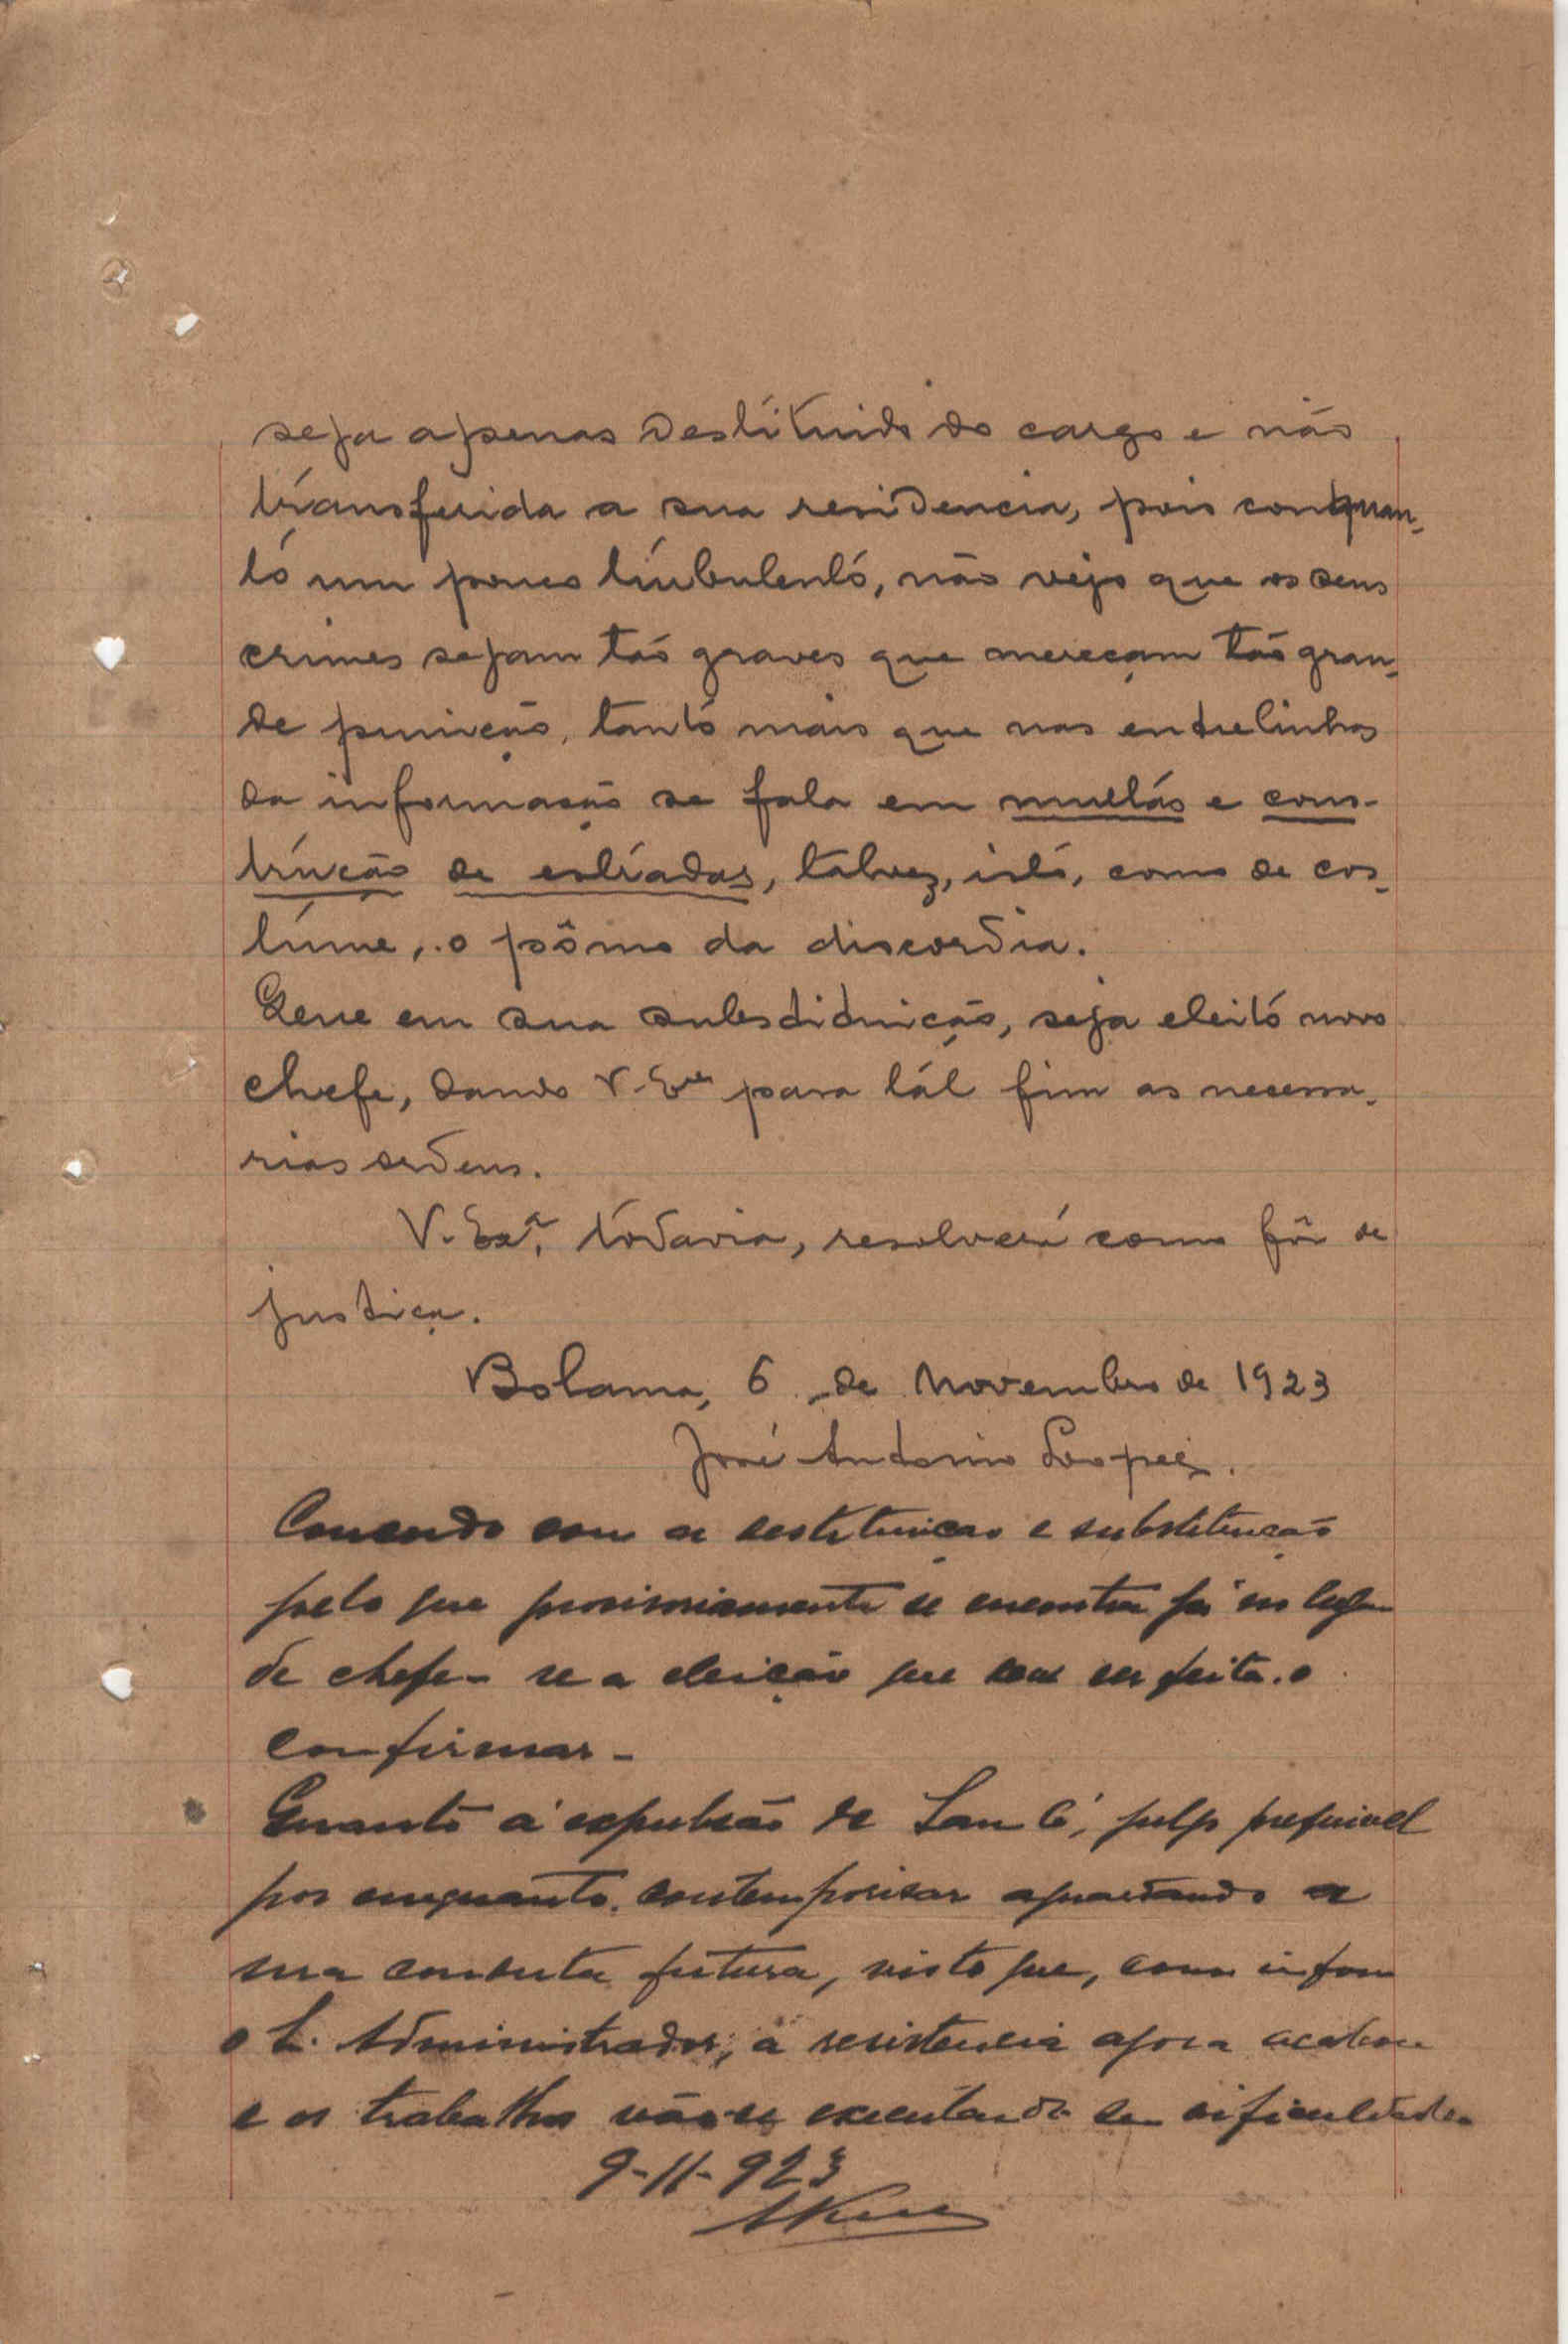 seja apenas destituido do cargo e não
transferida a sua residencia, pois conquan-
to um pouco turbulento, não vejo que os seus
crimes sejam tão graves que mereçam tão gran-
de punição, tanto mais que nas entrelinhas
da informação se fala em multas e cons-
trução de estradas, talvez, isto, como de cos-
tume, o pômo da discordia.
que em sua substituição, seja eleito novo
chefe, dando V. Exª para tal fim as necessa-
rias ordens.
V. Exª, todavia, resolverá como fôr de
justiça.
Bolama, 6 de Novembro de 1923
José Antonio Lopes.
Concordo com a destituição e substituição
pelo que provisoriamente se encontra já no lugar
de chefe - se a eleição que tem ser feita o
confirmar -
Quanto á expulsão de Sam Cá, julgo preferivel
por enquanto contemporisar aguardando a
sua conducta futura, visto que, como informa
o S. Administrador, a resistencia agora acabou
e os trabalhos vão-se executando sem dificuldades
9-11-923